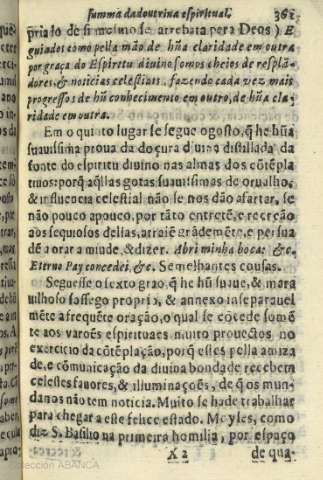 summa da doutrina espiritual. 361
priado de si mesmo se arrebata pera Deos) E
guiados como pella mão de hũa claridade em outra
por graça do Espiritu diuino somos cheios de resplã-
dores, & noticias celestiais, fazendo cada vez mais
progressos de hũ conhecimento em outro, de hũa cla-
ridade em outra.
Em o quinto lugar se segue o gosto, q̃ he hũa
suauissima proua da doçura diuina distillada da
fonte do espiritu diuino nas almas dos cõtẽpla
tiuos: porq̃ aq̃llas gotas suauissimas de orualho,
& influencia celestial não se nos dão a fartar, se
não pouco a pouco, por tãto entretẽ, e recreão
aos sequiosos dellas, atraiẽ grãdemẽte, e persua
dẽ a orar a miude, & dizer. Abri minha boca: &c.
Eterno Pay concedei, &c. Semelhantes cousas.
Seguesse o sexto grao, q̃ he hũ suaue, & mara
uilhoso sossego propria, & annexo inseparauel
mẽte a frequẽte oração, o qual se cõcede somẽ
te aos varoẽs espirituaes muito prouectos no
exercicio da cõtẽplação, porq̃ estes pella amiza
de, e comunicação da diuina bondade recebem
celestes fauores, & illuminaçoẽs, de q̃ os mun-
danos não tem noticia. Muito se ha de trabalhar
para chegar a este felice estado. Moyses, como
diz S. Basilio na primeira homilia, por espaço
X 2 de qua-
Colección ABANCA